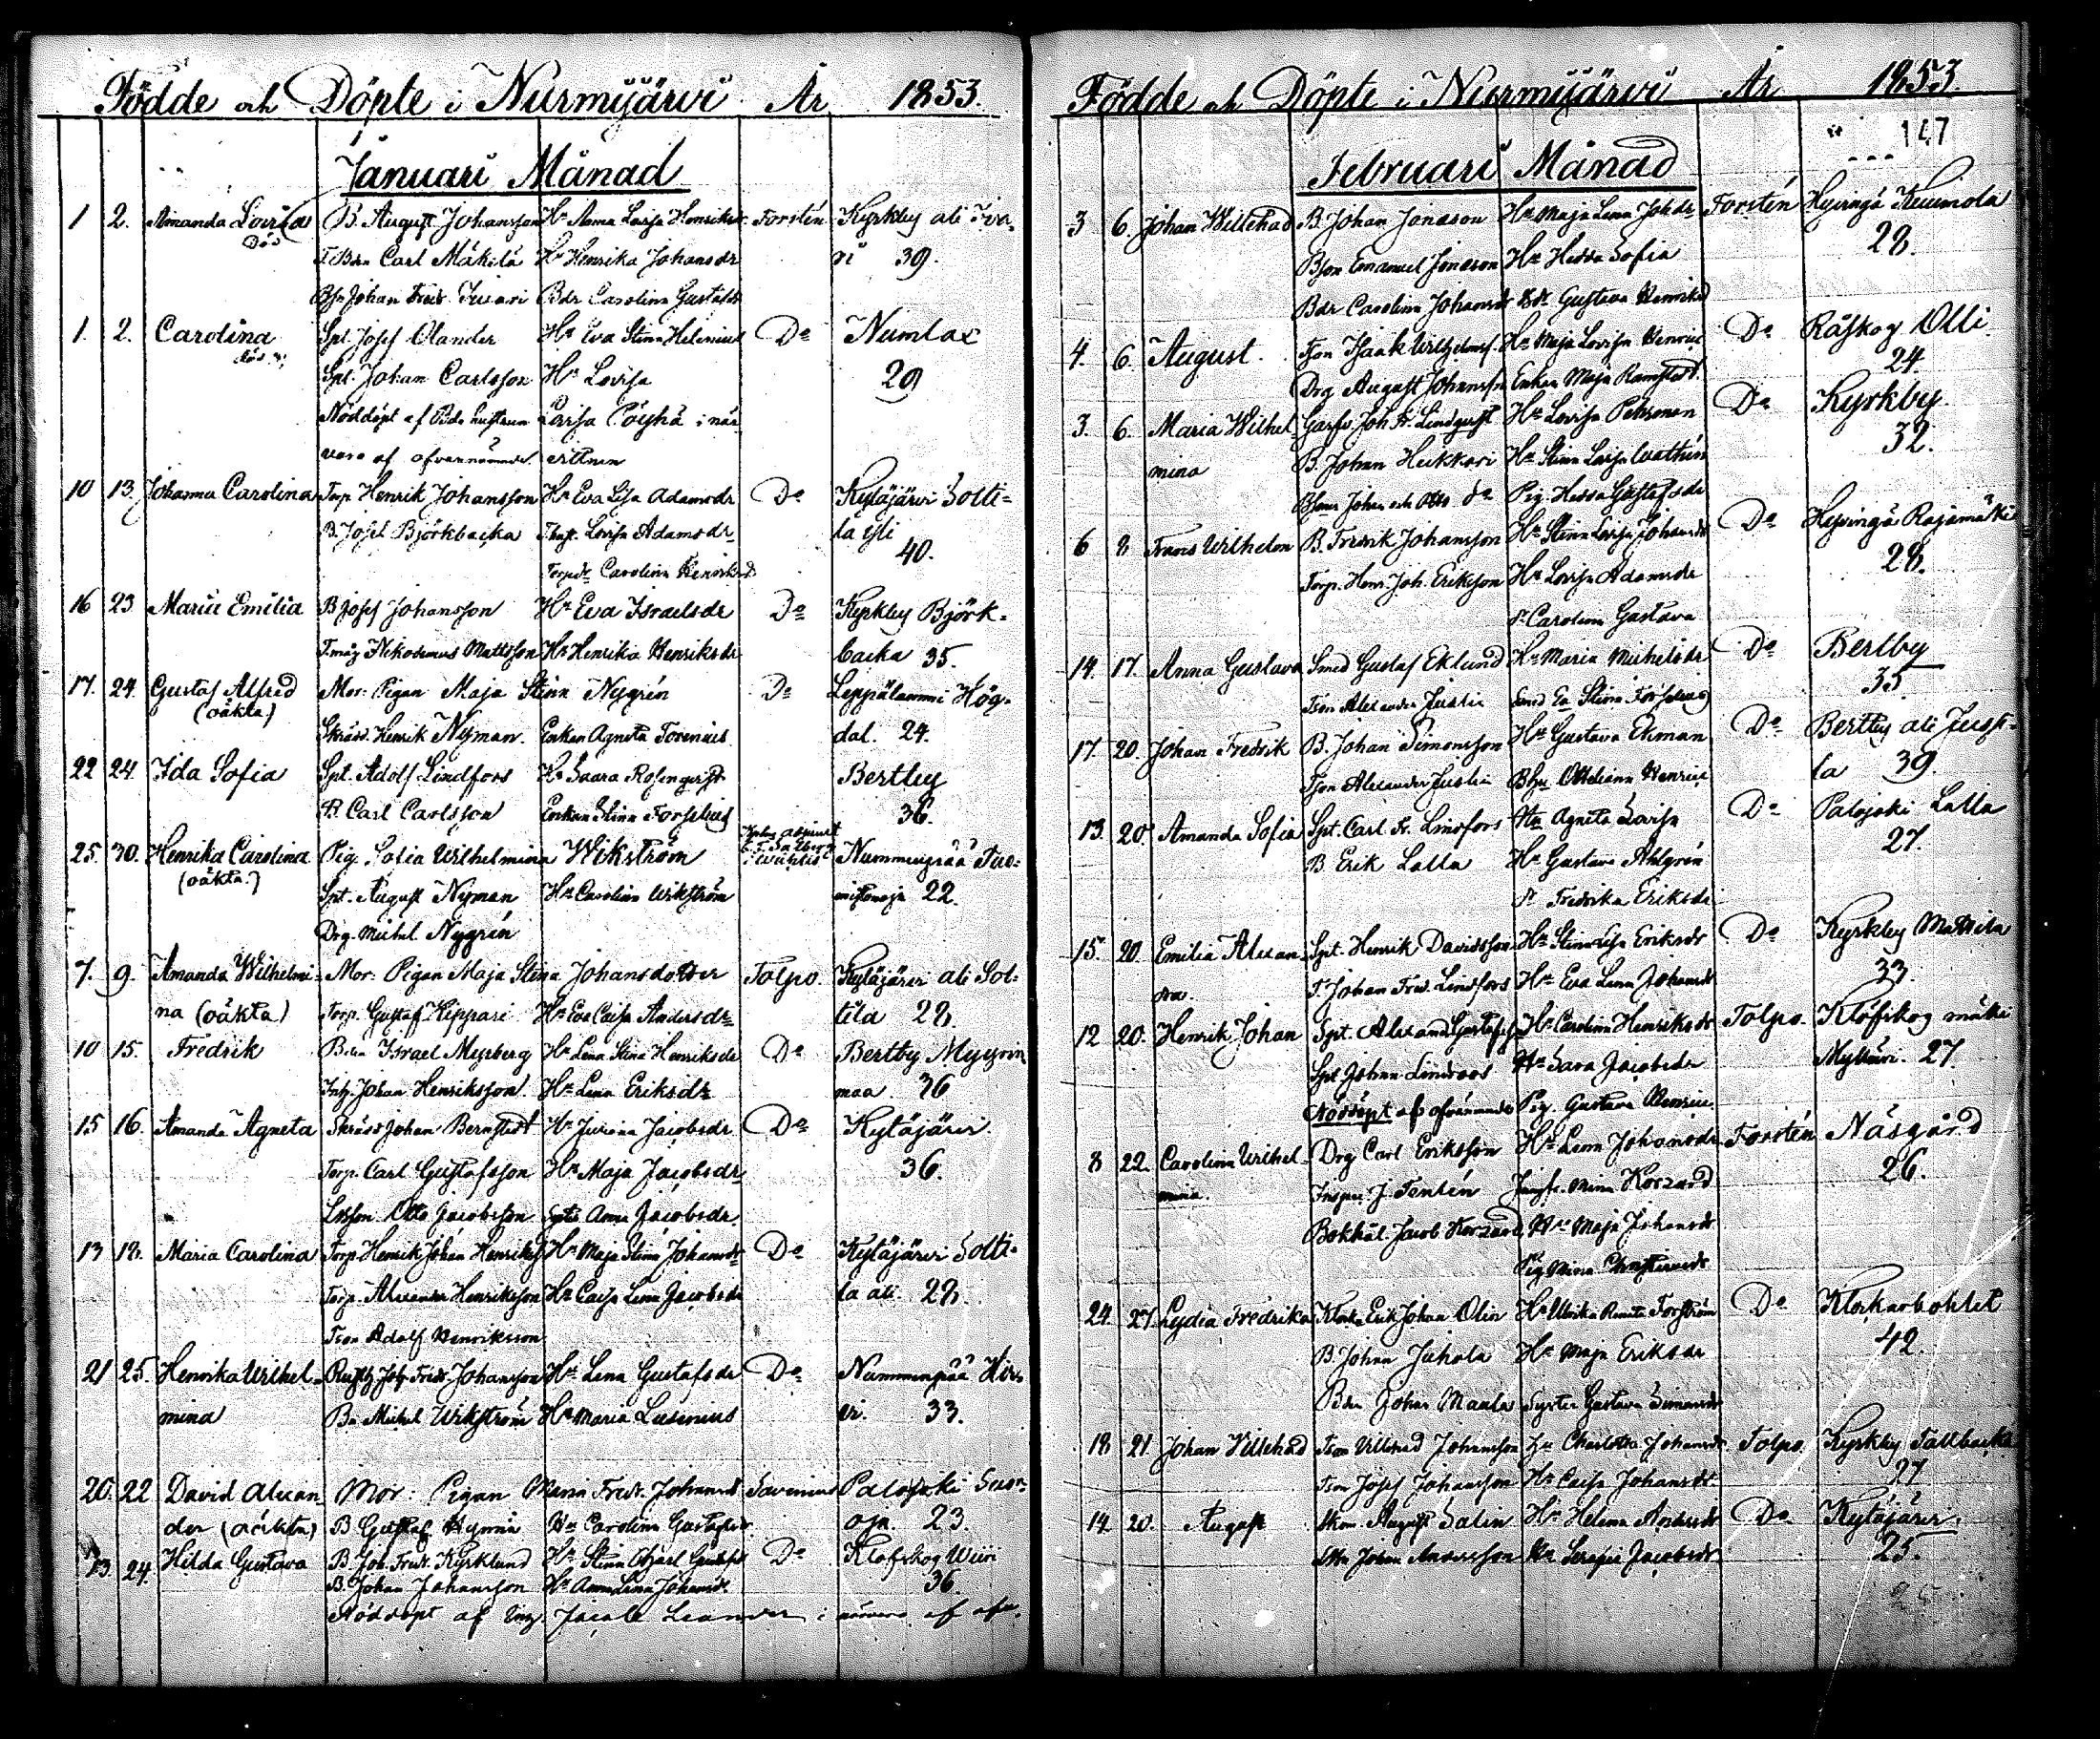 Födde och Döpte i Nurmijärvi År 1853.
Januari Månad
1 2. Amanda Lovisa B. August Johansson Hu Anna Lovisa Henriksdr Forstén Kyrkby ali Iva-
Död T. Bdn Carl Mäkilä Hu Henrika Johansdr ri 39.
Bsn Johan Fredr. Bdr Carolina Gustafsdr
1. 2. Carolina Spt Josef Olander Hu Eva Stina Helenius Do Numlax
död Spt. Johan Carlsson Hu Lovisa 29
Nöddöpt af Bdn hustrun Lovisa Pöyhä i när
varo af ofvannämnde vittnen
10 13. Johanna Carolina Torp Henrik Johansson Hu Eva Lisa Adamsdr Do Kytäjärvi Solti=
B. Josef Björkbacka Lovisa Adamsdr la yli
Torpdr Carolina Henriksd 40.
16 23 Maria Emilia B Josef Johansson Hu Eva Israelsdr Do Kyrkby Björk-
Nikodemus Mattsson Hu Henrika Henriksdr backa 35.
17. 24. Gustaf Alfred Mor: Pigan Maja Stina Nygrén Do Leppälammi Hög-
(oäkta) Skrädd. Henrik Nyman. Enkan Agneta Forenius dal. 24.
22 24. Ida Sofia Spt. Adolf Lindfors Hu Saara Rosenqvist Bertby
B Carl Carlsson Enkan Stina Forselius 36.
25. 30. Henrika Carolina Pig. Sofia Wilhelmina Wikström adjunct Nummenpää Tuo-
(oäkta.) Spt. August Nyman Hu Carolina Wikström 22.
Drg. Michel Nygrén
7. 9. Amanda Wilhelmi- Mor: Pigan Maja Stina Johansdotter Tolpo. Kytäjärvi ali Sol-
na (oäkta) Torp. Gustaf Kippari Hu Eva Caisa Andersdr tila 28.
10 15. Fredrik Bdn Israel Myrberg Hu Lena Stina Henriksdr Do Bertby Myyrin
Johan Henriksson. Hu Lena Eriksdr maa. 36
15 16. Amanda Agneta Skrädd Johan Bernstedt Hu Juliana Jacobsdr Do Kytäjärvi
Torp. Carl Gustafsson Hu Maja Jacobsdr 36.
Otto Jacobsson Anna Jacobsdr
13 18. Maria Carolina Torp Henrik Johan Henrikss Hu Maja Stina Johansdr Do Kytäjärvi Solti-
Torp. Alexander Henriksson Hu Caisa Lena Jacobsdr la ali. 28.
Tson Adolf Henriksson
21 25. Henrika Wilhel- Fredr. Johansson Hu Lena Gustafsdr Do Nummenpää
mina Bn Michel Wikström Hu Maria Lusenius vi. 33.
20. 22 David Alexan Mor: Pigan Maria Fredr. Johansd Savenius Palojoki Suo-
der (oäkta) B Gustaf Hu Carolina Gustafsdr oja. 23.
13. 24. Hilda Gustava B. Joh. Fredr. Kyrklund Hu Stina Do Klöfskog Wiiri
B. Johan Johansson Hu Anna Lena Johansdr 36.
Nöddöpt af Jacob Leander i närvaro af ofv.
Födde och Döpte i Nurmijärvi År 1853.
147
Februari Månad
3 6. Johan Willehad B. Johan Jonasson Hu Maja Lena Johdr Forstén Hyvingä Kuumola
Bson Emanuel Jonasson Hu Hedda Sofia 28.
Bdr Carolina Johansdr Bdr Gustava Henriksd
4. 6. August. Tson Isaak Wilhelmss. Hu Maja Lovisa Henric Do Råskog Olli
Drg August Johansson Enkan Maja Ramstedt. 24.
3. 6. Maria Wilhel- Garfv. Joh. Fr. Lindqvist Hu Lovisa Do Kyrkby.
mina B. Johan Heikkari Hu Stina Lovisa 32.
Johan och Otto do Pig. Hedda Gustafsdr
6 8 Frans Wilhelm B. Fredrik Johansson Hu Stina Lovisa Johansdr Do Hyvingä Rajamäki
Torp. Henr. Joh. Eriksson Hu Lovisa Adamsdr 28.
Carolina Gustava
14. 17. Anna Gustava Smed Gustaf Eklund Hu Maria Michelsdr Do Bertby
Tson Alexander Justin Stina Forselius 35
17. 20. Johan Fredrik B. Johan Simonsson Hu Gustava Ekman Do Bertby ali Jusi-
Tson Alexander Justin Ottiliana Henric la 39.
13. 20. Amanda Sofia Spt. Carl Fr. Lindfors Hu Agneta Lovisa Do Palojoki Lalla
B. Erik Lalla Hu Gustava Ahlgrén 27.
Fredrika Eriksdr
15. 20 Emilia Alexan- Spt. Henrik Davidsson Hu Stina Lisa Eriksdr Do Kyrkby Mattila
dra. T. Johan Fred. Lindfors Hu Eva Lena Johansdr 33.
12 20. Henrik Johan Spt. Alexand Gustafss Hu Carolina Henriksdr Tolpo. Klöfskog mäki
Spt Johan Lindroos Hu Sara Jacobsdr Mylläri. 27.
Nöddöpt af ofvannämnde Pig. Gustava Henric
8 22. Carolina Wilhel- Drg Carl Eriksson Hu Lena Johansdr Forstén Näsgård
mina. J. Tentén Jungfr. Mina Korzard 26.
Bokhål. Jacob Korzard Hu Maja Johansdr
Pig Mina
24. 27. Lydia Fredrika Klock. Erik Johan Olin Hu Ulrika Renata Forström Do Klockarbohlet
B. Johan Juhola Hu Maja Eriksdr 42.
Bdn Johan Maula Syster Gustava Simonsdr
18 21. Johan Willehad Tson Willehad Johansson Hu Charlotta Johansdr Tolpo. Kyrkby Tallbacka
Tson Josef Johansson Hu Caisa Johansdr 27
14. 20. August August Salin Hu Helena Andersdr Do Kytäjärvi
Johan Andersson Hu Serafia Jacobsdr 25.
25